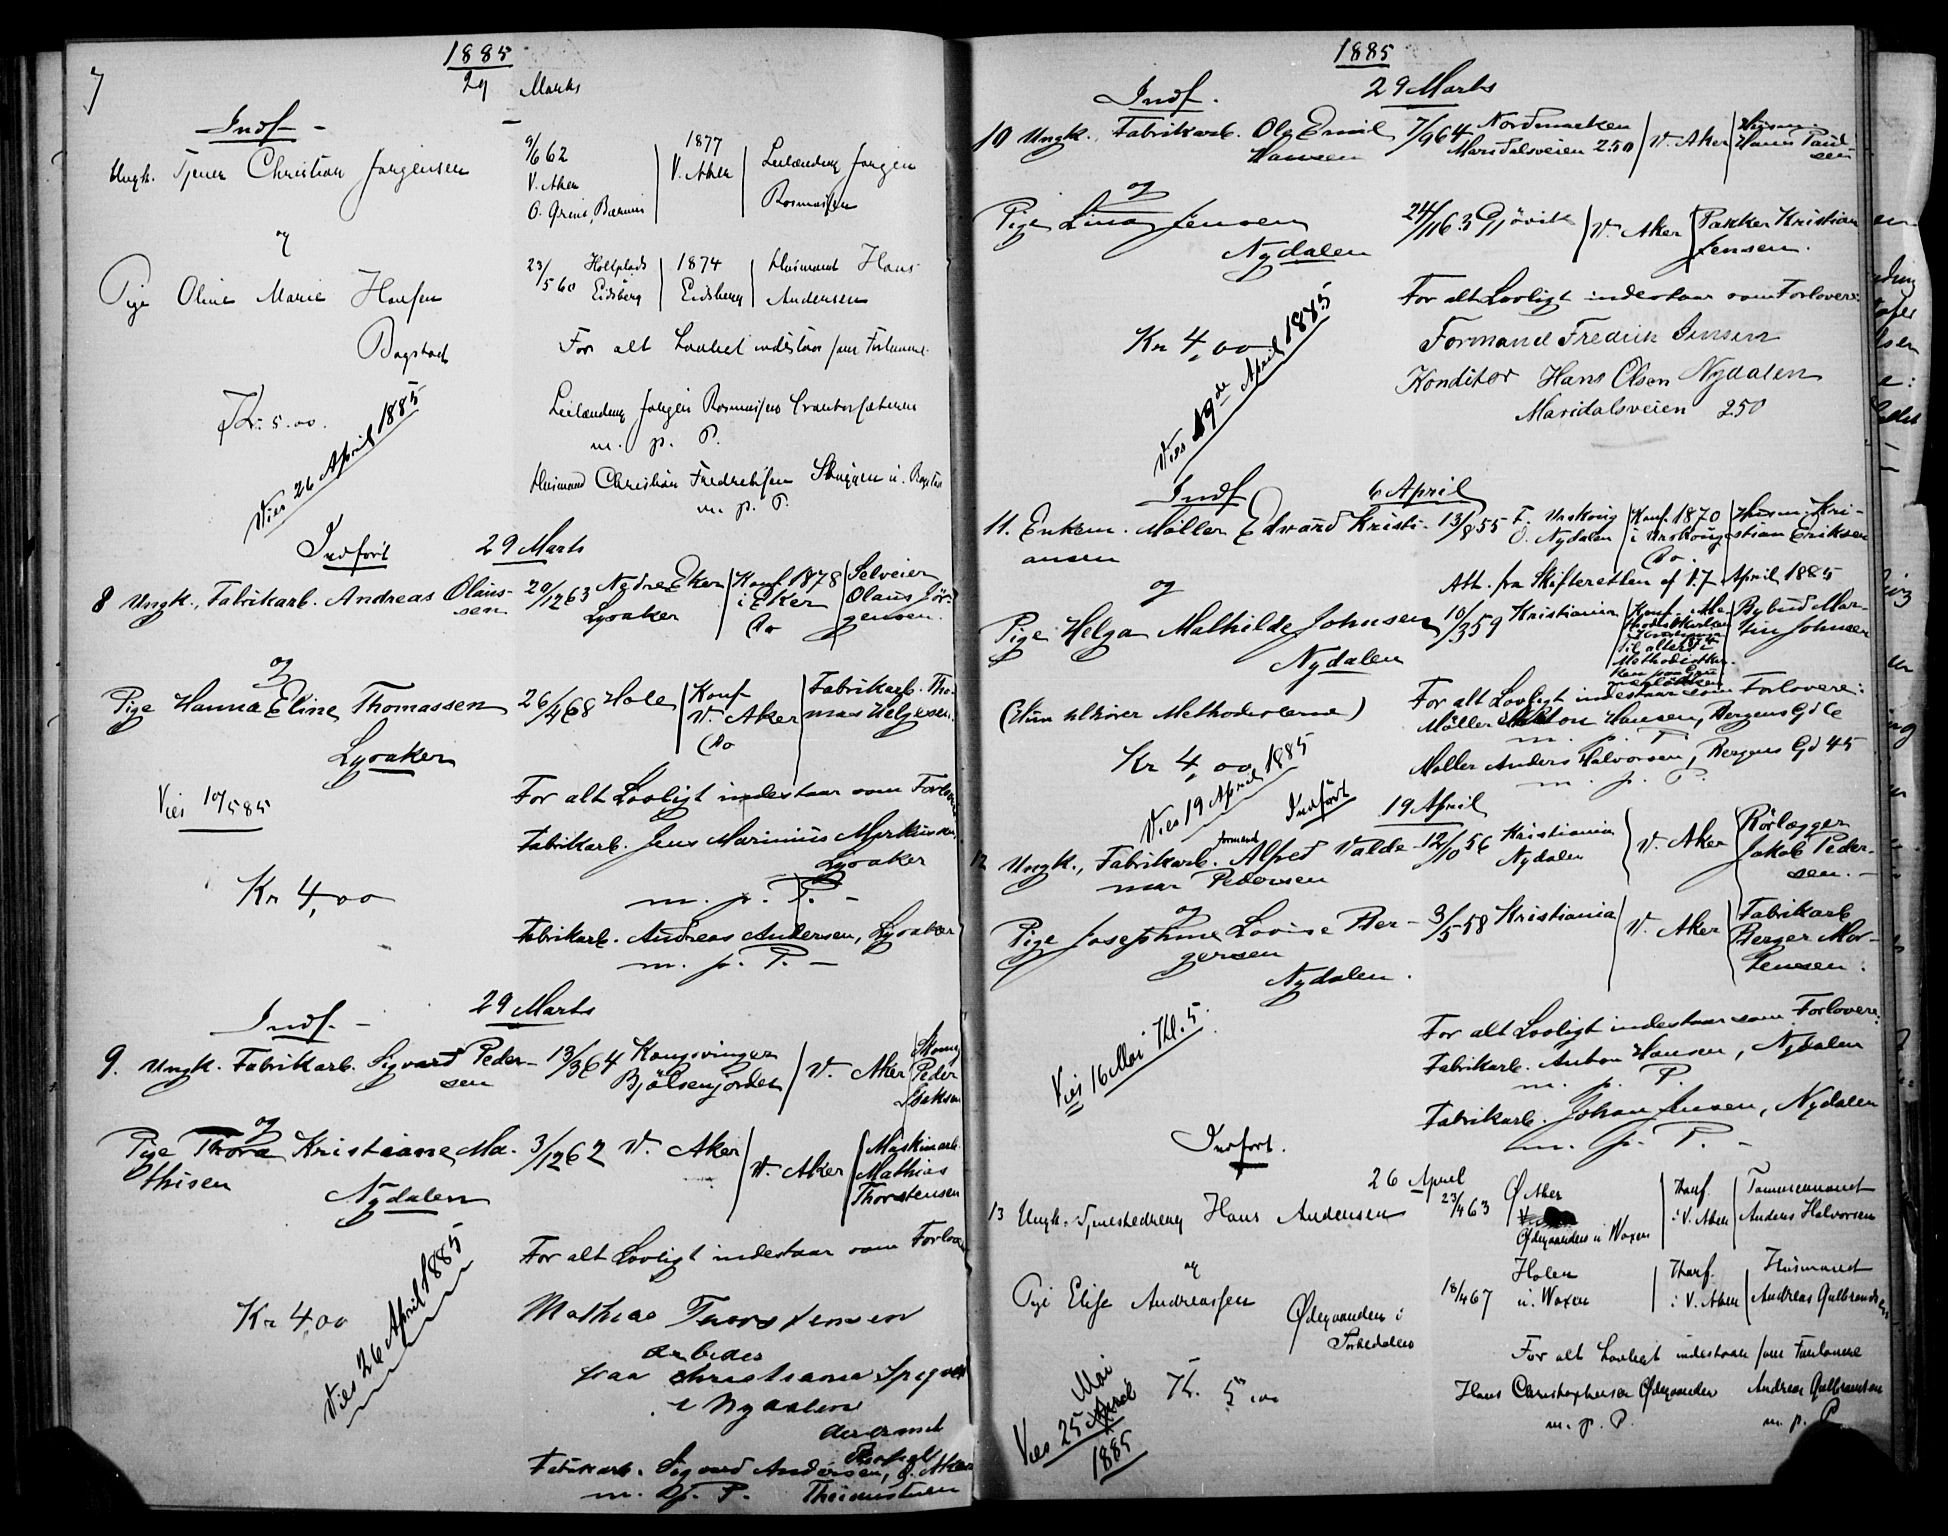 1885
29 Marts
7
Indf.
Ungk. Tjener Christian Jørgensen
9/6 62
V. Aker
O. Grini, Bærum
1877
V. Aker
Leilænding Jørgen
Rasmussen
og
Pige Oline Marie Hansen
Bogstad
23/5 60
Eidsberg
1874
Eidsberg
Husmand Hans
Andersen
For alt Lovligt indestaar som Forlovere
Kr. 5.00.
Vies 26 April 1885
Leilænding Jørgen Rasmussen
m. p. P.
Husmand Christian Fredriksen
m. p. P.
Indført
29 Marts
8 Ungk., Fabrikarb. Andreas Olaus-
sen
20/12 63 Nedre Eker
Lysaker
Konf 1878
i Eker
Do
Selveier
Olaus Jör-
gensen.
og
Pige Hanna Eline Thomassen
Lysaker
26/4 68 Hole
Konf
V. Aker
Do
Fabrikarb. Tho-
mas Helgesen.
Vies 10/5 85
For alt Lovligt indestaar som Forlovere
Fabrikarb. Jens Marinius
Lysaker
m. p. P. -
Kr 4,00
Fabrikarb. Andreas Andersen, Lysaker
m. p. P. -
Indf. -
29 Marts
9. Ungk. Fabrikarb. Sigvart Peder-
sen
13/3 64 Kongsvinger
Bjølsenjordet
V. Aker
Peder
Isaksen
og
Pige Thora Kristiane Ma-
thisen
Nydalen
3/12 62 V. Aker
V. Aker
Maskinarb.
Mathias
Thorstensen
For alt Lovligt indestaar som Forlovere
Kr 4,00
Vies 26 April 1885
Mathias Thorstensen
arbeder
paa Christiania Spigverk
i Nydalen
Fabrikarb. Sigvard Andersen,
m. p. P.
1885
Indf.
29 Marts
10 Ungk., Fabrikarb. Ole Emil
Hansen
7/9 64 Nordmarken
Maridalsveien 250
V. Aker
Husm.
Hans Paul-
sen
og
Pige Lina Jensen
Nydalen
24/11 63 Gjövik
V. Aker
Pakker Kristian
Jensen.
For alt Lovligt indestaar som Forlovere:
Kr 4,00
Vies 19de April 1885
Formand Fredrik Jensen
Konditor Hans Olsen Nydalen
Maridalsveien 250
Indf
6 April
11. Enkem. Møller Edvard Kristi-
ansen
13/8 55 F. Urskoug
O. Nydalen
Konf. 1870
i Urskoug
Do
Husm. Kri-
stian Eriksen
Att. fra Skifteretten af d. 7 April 1885
og
Pige Helga Mathilde Johnsen
Nydalen
10/3 59 Kristiania
Konf. Me-
thodistkirken
Bybud Mar-
tin Johnsen
(Hun tilhører Methodisterne)
For alt Lovligt indestaar som Forlovere:
Møller Anton Hansen, Bergens Gd 6
m. p. P.
Kr 4,00
Vies 19 April 1885
Møller Anders Halvorsen, Bergens Gd 45
m. p. P.
Indført
19 April
12 Ungk., Fabrikarb. formand Alfred Valde-
mar Pedersen
12/10 56 Kristiania
Nydalen
V. Aker
Rørlægger
Jakob Peder-
sen. -
og
Pige Josephine Lovise Ber-
gersen
Nydalen.
3/5 58 Kristiania
V. Aker
Fabrikarb
Berger Mor-
tensen.
Vies 16 Mai Kl. 5.
For alt Lovligt indestaar som Forlovere:
Fabrikarb. Anton Hansen, Nydalen
m. p. P.
Fabrikarb. Johan Jensen, Nydalen
m. p. P. -
Indført.
26 April
13 Ungk. Tjenestedreng Hans Andersen
23/4 63 Ø Aker
Ødegaarden i Woxen
Konf.
i V. Aker
Tømmermand
Anders Halvorsen
og
Pige Elise Andreassen
Ødegaarden i
Sørkedalen
18/4 67
Holen
i Woxen
Konf.
i V. Aker
Husmand
Andreas Gulbrandsen
For alt Lovligt indestaar som Forlovere
Kr. 5,00
Vies 25 Mai
1885
Hans Christophersen Ødegaarden Andreas Gulbrandsen
m. p. P. m. p. P.